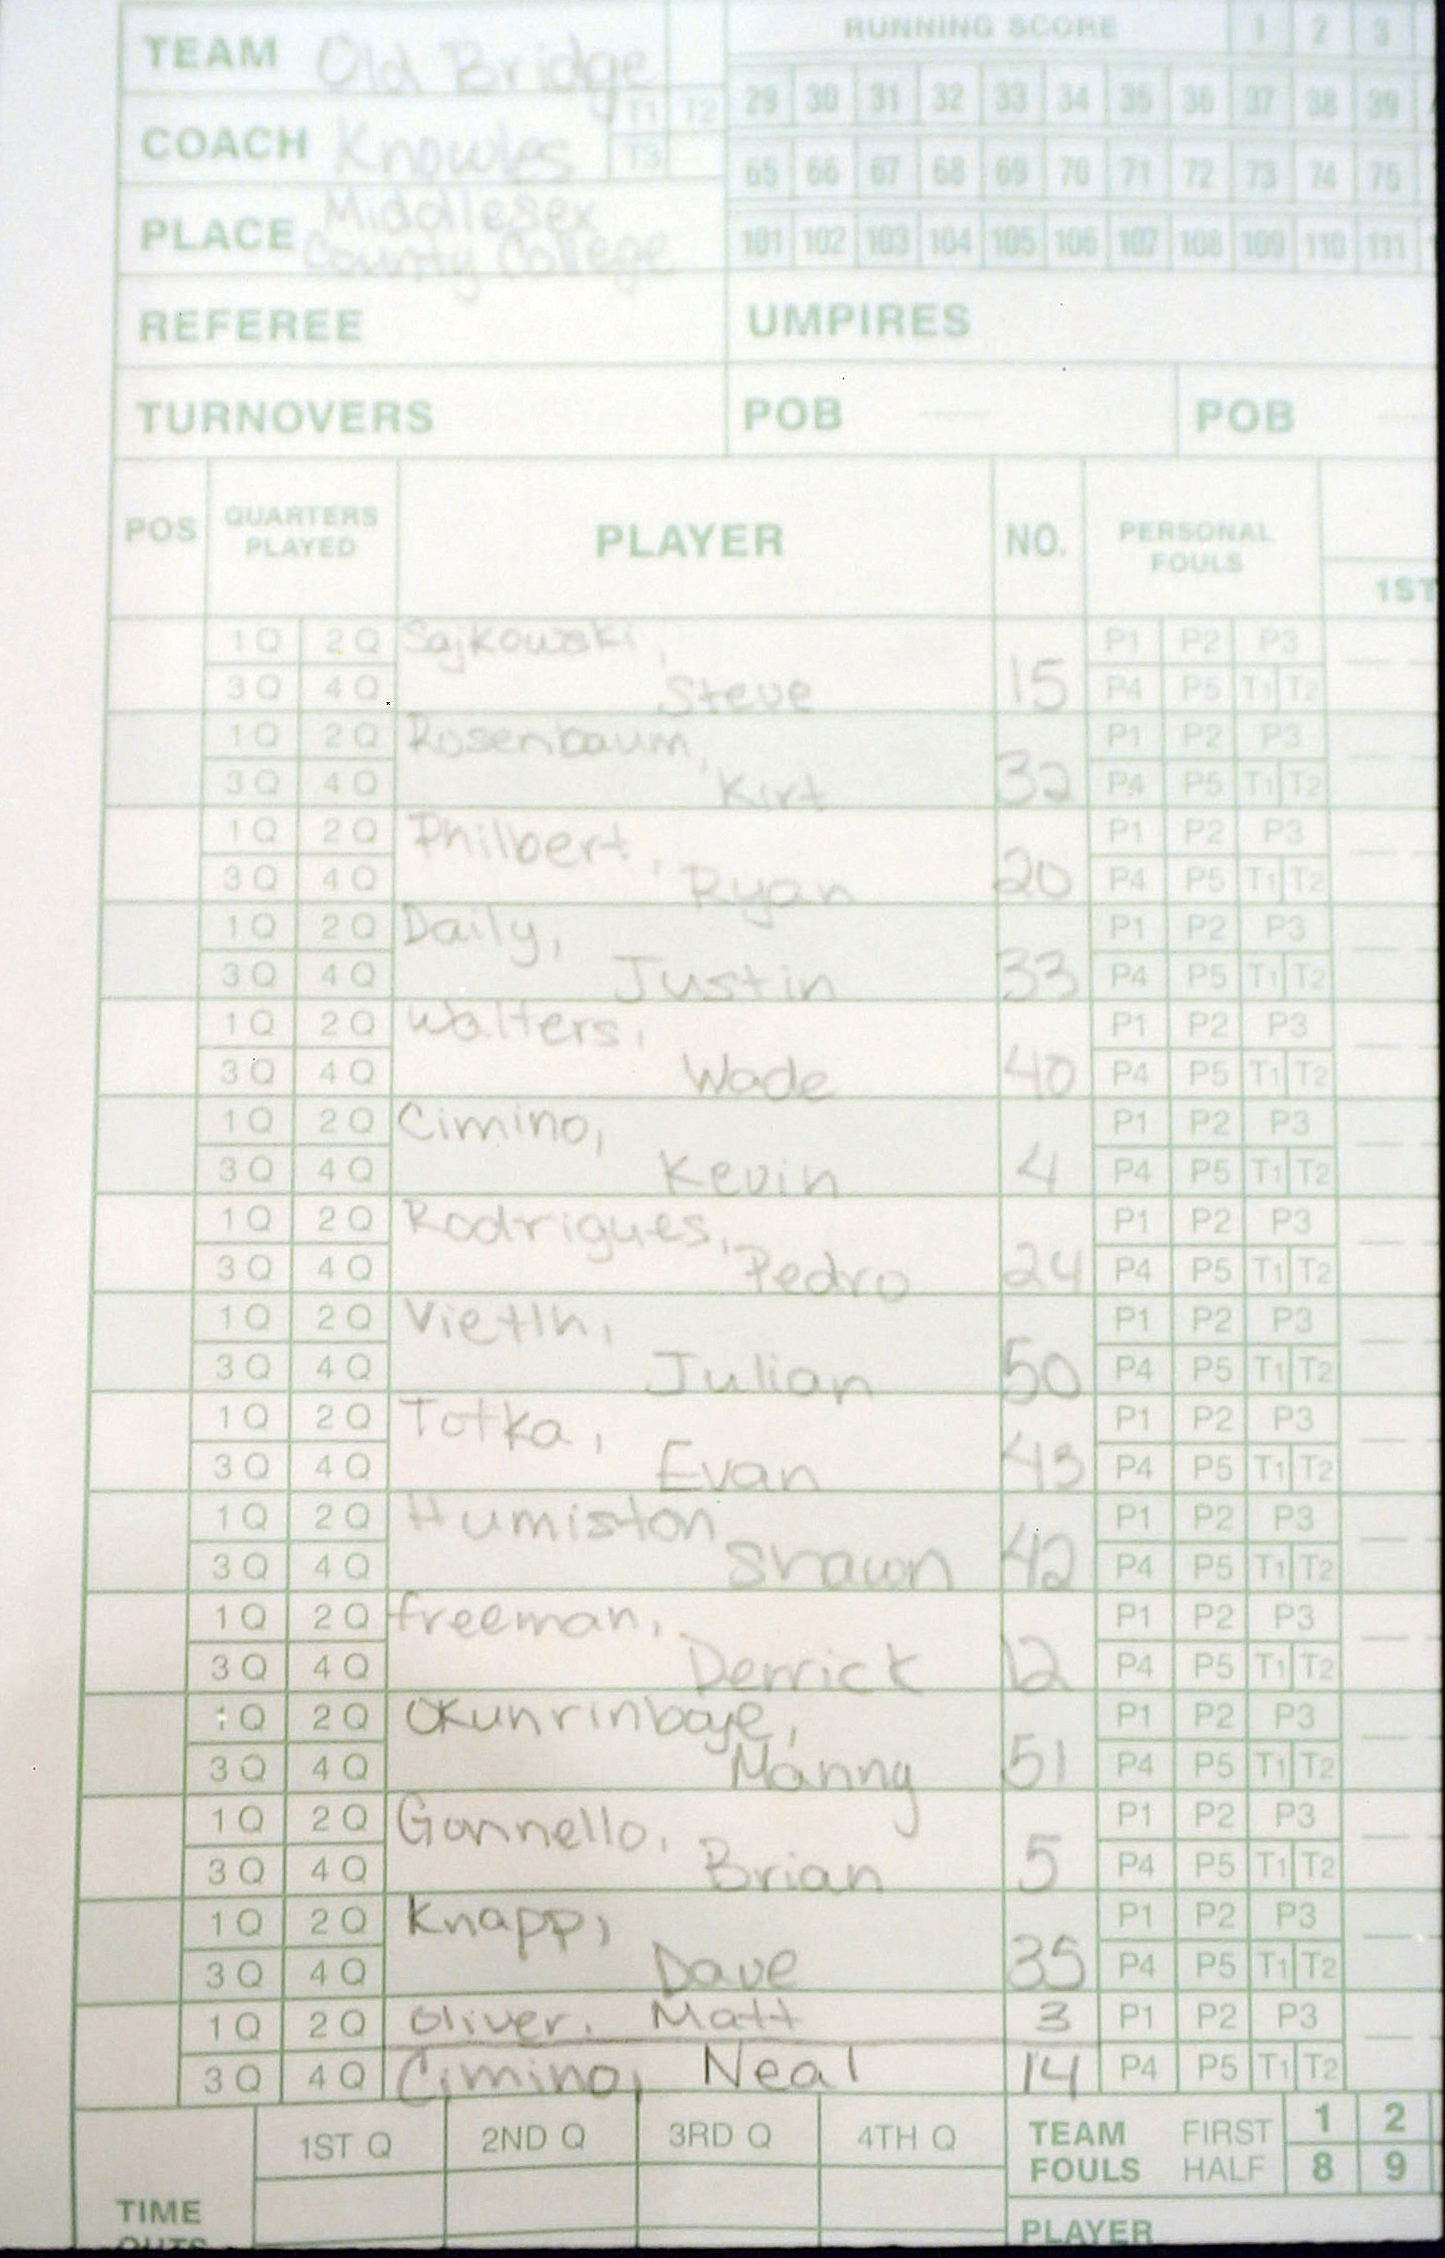 TEAM Old Bridge
RUNNING SCORE 1 2 3
T1 T2
29 30 31 32 33 34 35 36 37 38 39
COACH Knowles T3
65 66 67 68 69 70 71 72 73 74 75
PLACE Middlesex
County College
101 102 103 104 105 106 107 108 109 110 111
REFEREE UMPIRES
TURNOVERS POB POB
POS QUARTERS PLAYED PLAYER NO. PERSONAL FOULS 1ST
1Q 2Q Sajkowski, P1 P2 P3
3Q 4Q Steve 15 P4 P5 T1 T2
1Q 2Q Rosenbaum, P1 P2 P3
3Q 4Q Kirt 32 P4 P5 T1 T2
1Q 2Q Philbert, P1 P2 P3
3Q 4Q Ryan 20 P4 P5 T1 T2
1Q 2Q Daily, P1 P2 P3
3Q 4Q Justin 33 P4 P5 T1 T2
1Q 2Q Walters, P1 P2 P3
3Q 4Q Wade 40 P4 P5 T1 T2
1Q 2Q Cimino, P1 P2 P3
3Q 4Q Kevin 4 P4 P5 T1 T2
1Q 2Q Rodrigues, P1 P2 P3
3Q 4Q Pedro 24 P4 P5 T1 T2
1Q 2Q Vietlh, P1 P2 P3
3Q 4Q Julian 50 P4 P5 T1 T2
1Q 2Q Totka, P1 P2 P3
3Q 4Q Evan 43 P4 P5 T1 T2
1Q 2Q Humiston P1 P2 P3
3Q 4Q Shawn 42 P4 P5 T1 T2
1Q 2Q freeman, P1 P2 P3
3Q 4Q Derrick 12 P4 P5 T1 T2
1Q 2Q Okunrinboye, P1 P2 P3
3Q 4Q Manny 51 P4 P5 T1 T2
1Q 2Q Gonnello, P1 P2 P3
3Q 4Q Brian 5 P4 P5 T1 T2
1Q 2Q Knapp, P1 P2 P3
3Q 4Q Dave 35 P4 P5 T1 T2
1Q 2Q Oliver. Matt 3 P1 P2 P3
3Q 4Q Cimino, Neal 14 P4 P5 T1 T2
1ST Q 2ND Q 3RD Q 4TH Q TEAM FOULS FIRST HALF 1 2
8 9
TIME OUTS
PLAYER